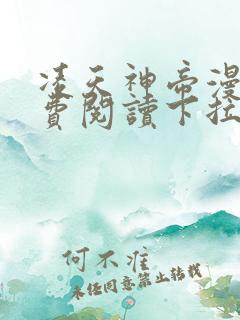 凌天神帝漫
費閱讀下拉
何不准
未经同意禁止转载